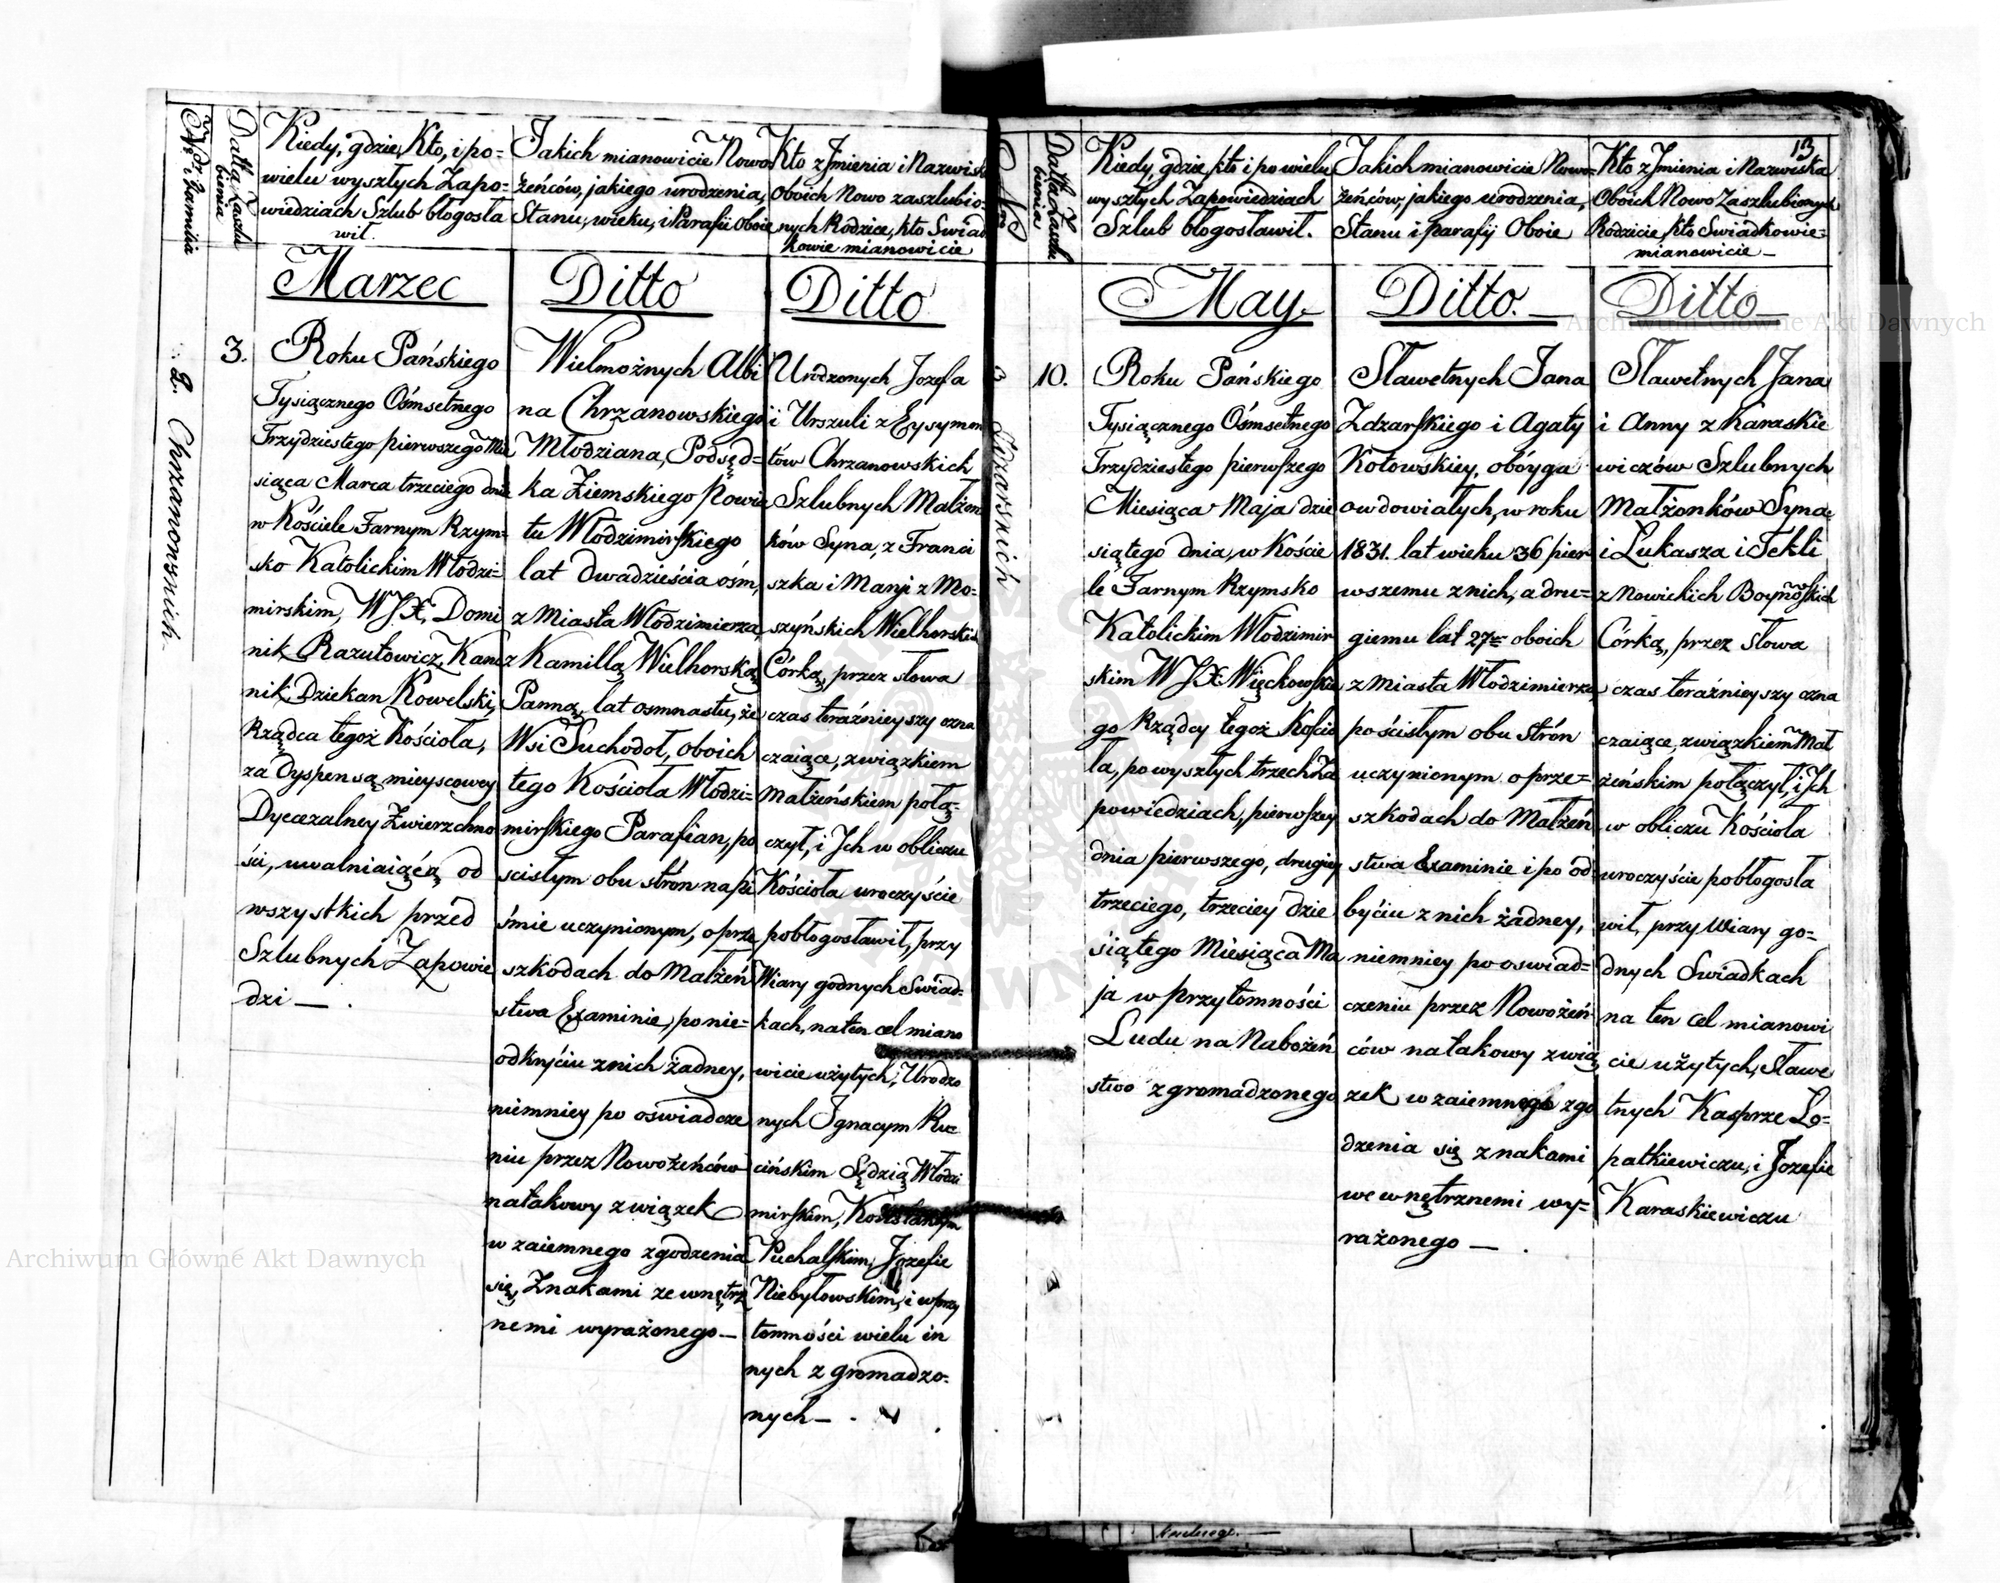 Nr. i Familia
Datta Zaślu
bienia
Kiedy, gdzie, Kto, i po=
wielu wyszłych Zapo=
wiedziach Szlub błogosła
wił.
Jakich mianowicie Nowo
żeńców, jakiego urodzenia,
Stanu, wieku, i Parafii Oboie
Kto z Jmienia i Nazwisk
Oboich Nowo zaszlubio=
nych Rodzice, kto Swiad
kowie mianowicie
Marzec
Ditto
Ditto
2. Chrzanowskich
3.
Roku Pańskiego
Tysiącznego Ośmsetnego
Trzydziestego pierwszego Mie
siąca Marca trzeciego dnia
w Kościele Farnym Rzym=
sko Katolickim Włodzi=
mirskim, WJX, Domi
nik Razutowicz, Kano
nik, Dziekan Kowelski,
Rządca tegoż Kościoła,
za Dyspensą mieyscowey
Dyecezalney Zwierzchno
ści, uwalniaiącą od
wszystkich przed
Szlubnych Zapowie
dzi — .
Wielmożnych Albi
na Chrzanowskiego
Młodziana, Podsęd=
ka Ziemskiego Powia
tu Włodzimirskiego
lat dwadzieścia ośm,
z Miasta Włodzimierza,
z Kamillą Wielhorską
Panną, lat osmnastu, ze
Wsi Suchodoł, oboich
tego Kościoła Włodzi=
mirskiego Parafian, po
scisłym obu strón na pi
śmie uczynionym, o prze
szkodach do Małżeń
stwa Examinie, po nie=
odkryciu z nich żadney,
niemniey po oswiadcze
niu przez Nowożeńców
na takowy związek
wzaiemnego zgodzenia
się, Znakami zewnętrz
nemi wyrażonego —
Urodzonych Jozefa
i Urszuli z Eysymon
tów Chrzanowskich
Szlubnych Małżon
ków Syna, z Franci
szka i Maryi z Mo=
szyńskich Wielhorskich
Córką, przez słowa
czas teraźnieyszy ozna
czaiące, związkiem
Małżeńskiem połą=
czył, i Jch w obliczu
Kościoła uroczyście
pobłogosławił, przy
Wiary godnych Swiad=
kach, na ten cel miano
wicie użytych, Urodzo
nych Jgnacym Ru=
cińskim Sędzią Włodzi
mirskim, Konstantym
Puchalskim, Jozefie
Niebyłowskim, i w przy
tomności wielu in
nych zgromadzo=
nych — .
13
Nr
Datta Zaszlu
bienia
Kiedy, gdzie, kto i po wielu
wyszłych Zapowiedziach
Szlub błogosławił.
Jakich mianowicie Nowo=
żeńców, jakiego urodzenia,
Stanu i parafij Oboie
Kto z Jmienia i Nazwiska
Oboich Nowo Zaszlubionych
Rodzicie, kto Swiadkowie=
mianowicie —
May.
Ditto. —
Ditto —
3 Zdzarskich
10.
Roku Pańskiego
Tysiącznego Ośmsetnego
Trzydziestego pierwszego
Miesiąca Maja dzie
siątego dnia, w Koście
le Farnym Rzymsko
Katolickim Włodzimir
skim WJX Więckowskie
go Rządcy tegoż Koscio
ła, po wyszłych trzech Za
powiedziach, pierwszey
dnia pierwszego, drugiey
trzeciego, trzeciey dzie
siątego Miesiąca Ma
ja w przytomności
Ludu na Nabożeń
stwo zgromadzonego
Sławetnych Jana
Zdzarskiego i Agaty
Kotowskiey, obóyga
owdowiałych, w roku
1831. lat wieku 36 pier
wszemu z nich, a dru=
giemu lat 27= oboich
z Miasta Włodzimierza,
po ścisłym obu strón
uczynionym o prze=
szkodach do Małżeń
stwa Examinie i po od
byciu z nich żadney,
niemniey po oswiad=
czeniu przez Nowożeń
ców na takowy zwią
zek wzaiemnego zgo
dzenia się znakami
wewnętrznemi wy=
rażonego — .
Sławetnych Jana
i Anny z Karaskie
wiczów Szlubnych
Małżonków Syna,
i Łukasza i Tekli
z Nowickich Boynowskich
Córką, przez słowa
czas teraźnieyszy ozna
czaiące, związkiem Mał
żeńskim połączył, i Jch
w obliczu Kościoła
uroczyście pobłogosła
wił, przy Wiary go=
dnych Swiadkach
na ten cel mianowi
cie użytych, Sławe
tnych Kasprze Ło=
patkiewiczu, i Jozefie
Karaskiewiczu
Archiwum Główne Akt Dawnych
Archiwum Główne Akt Dawnych